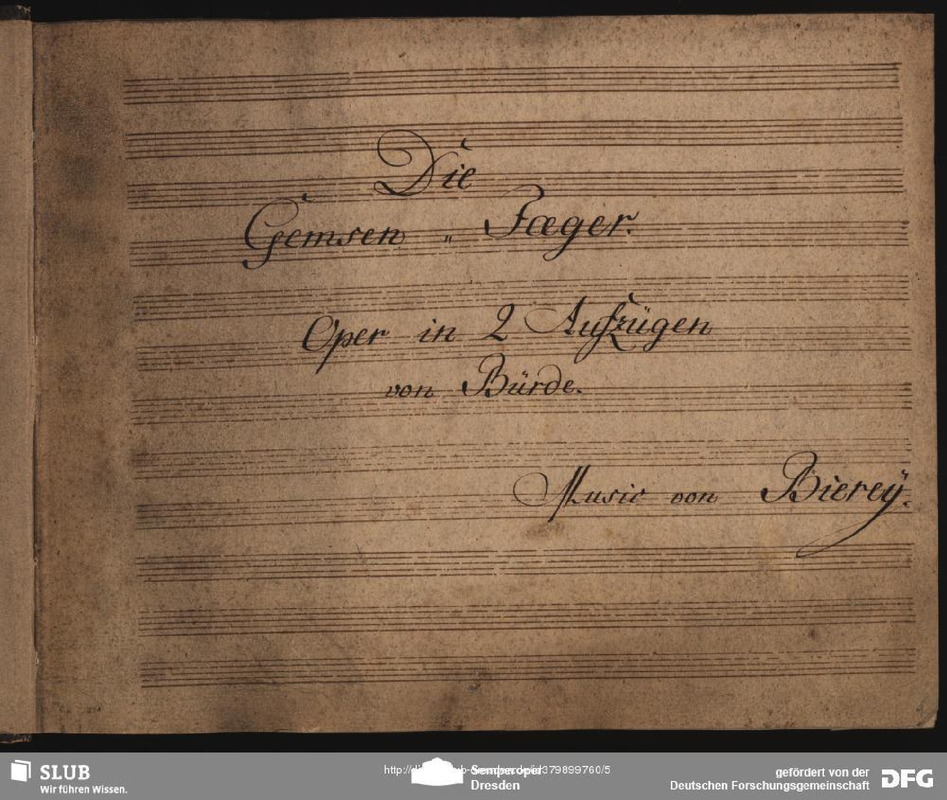 Die
Gemsen „ Jæger.
Oper in 2 Aufzügen
von Bürde.
Music von Biereÿ.
SLUB
Wir führen Wissen.
Semperoper
Dresden
gefördert von der
Deutschen Forschungsgemeinschaft
DFG